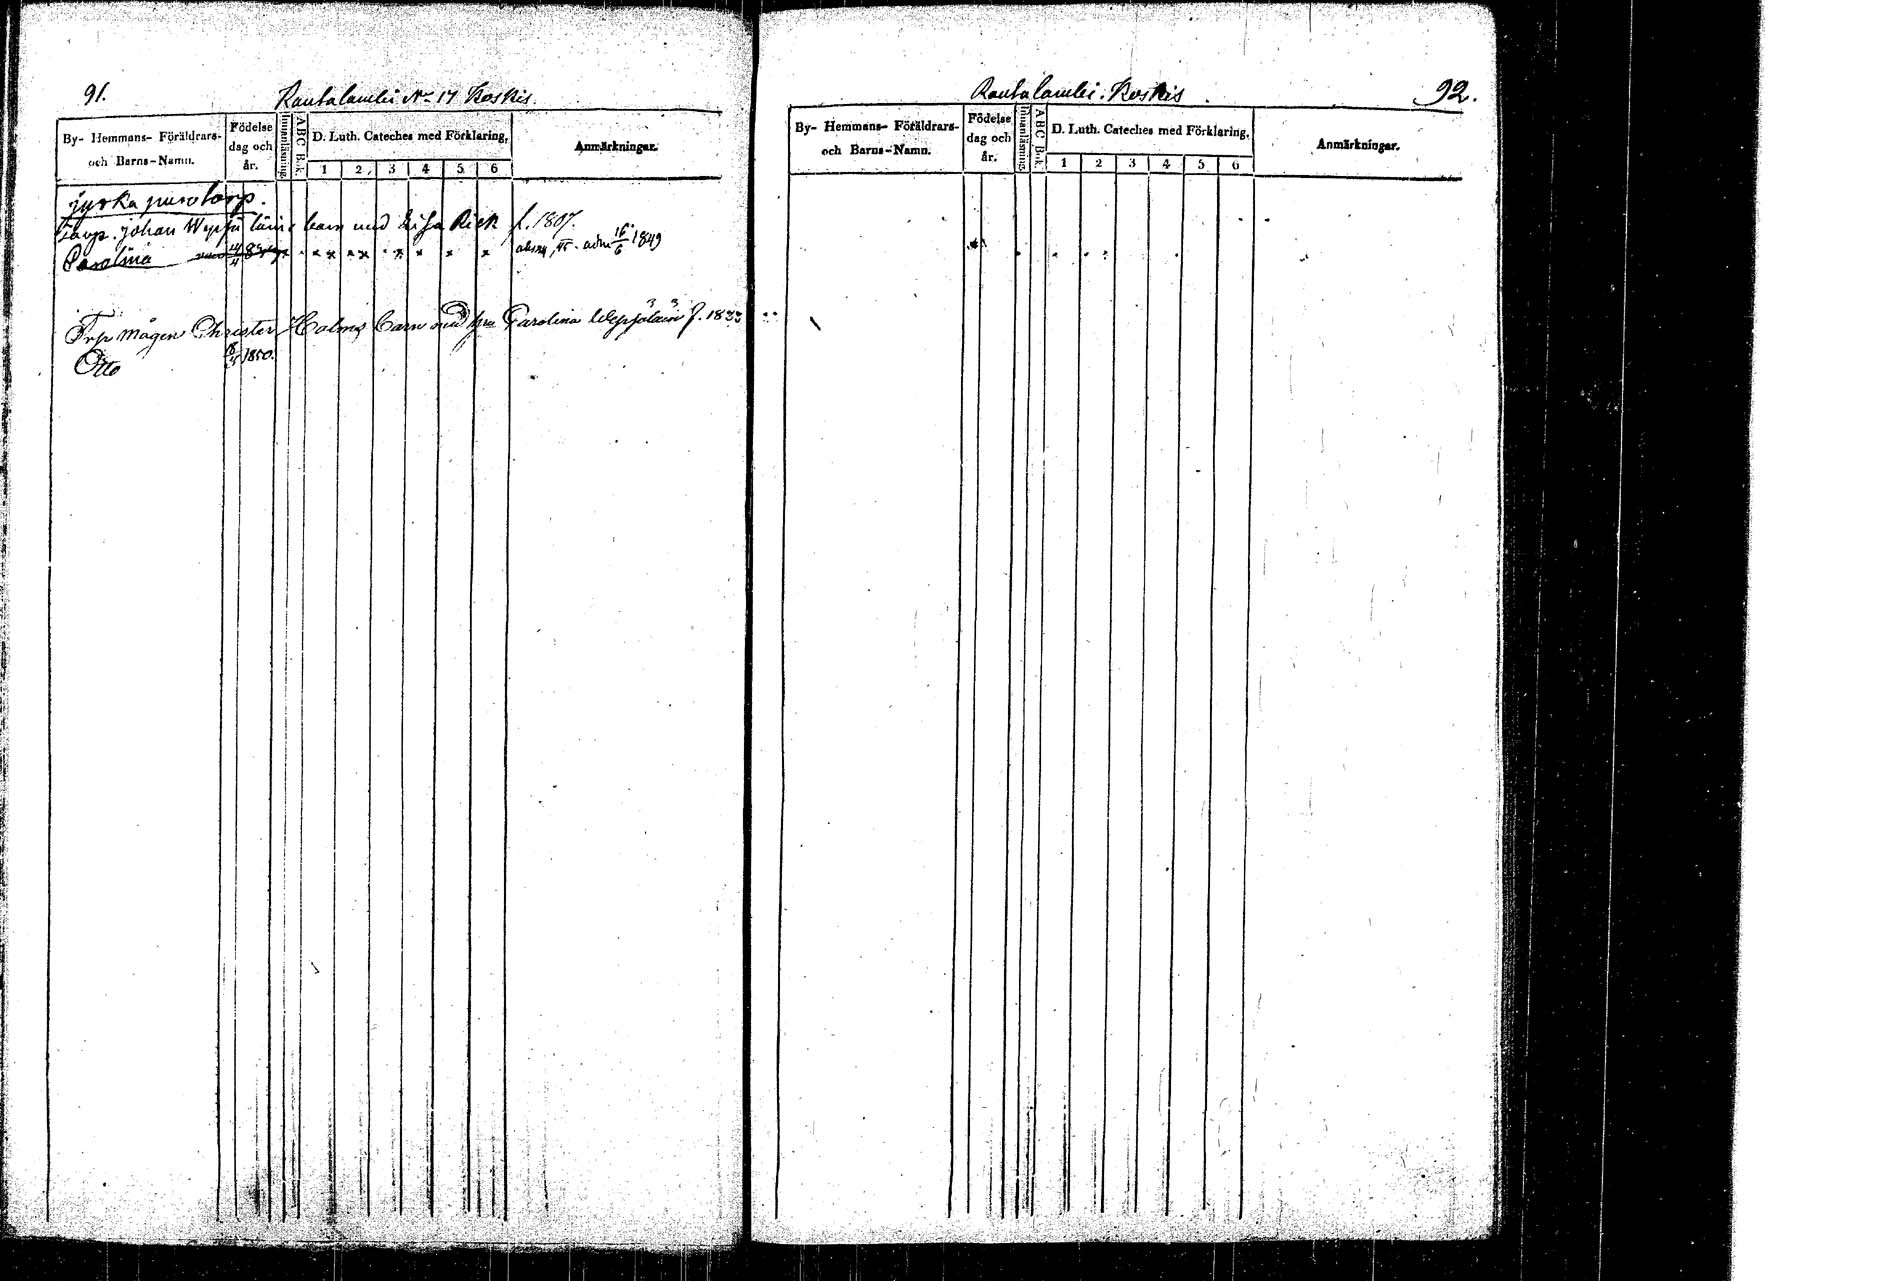 91.
Rautalambi No 17 Koskis.
By- Hemmans- Föräldrars-
och Barns-Namn.
Födelse
dag och
år.
Innanläsning.
A B C Bok.
D. Luth. Cateches med Förklaring.
1 2 3 4 5 6
Anmärkningar.
Torp. Johan barn med Lisa Rick f. 1807.
Carolina 14/4 adm 16/6 1849
Mågen Christer Holms barn med hu Carolina f. 1833
Otto 1850.
Rautalambi. Koskis
92.
By- Hemmans- Föräldrars-
och Barns-Namn.
Födelse
dag och
år.
Innanläsning.
A B C Bok.
D. Luth. Cateches med Förklaring.
1 2 3 4 5 6
Anmärkningar.